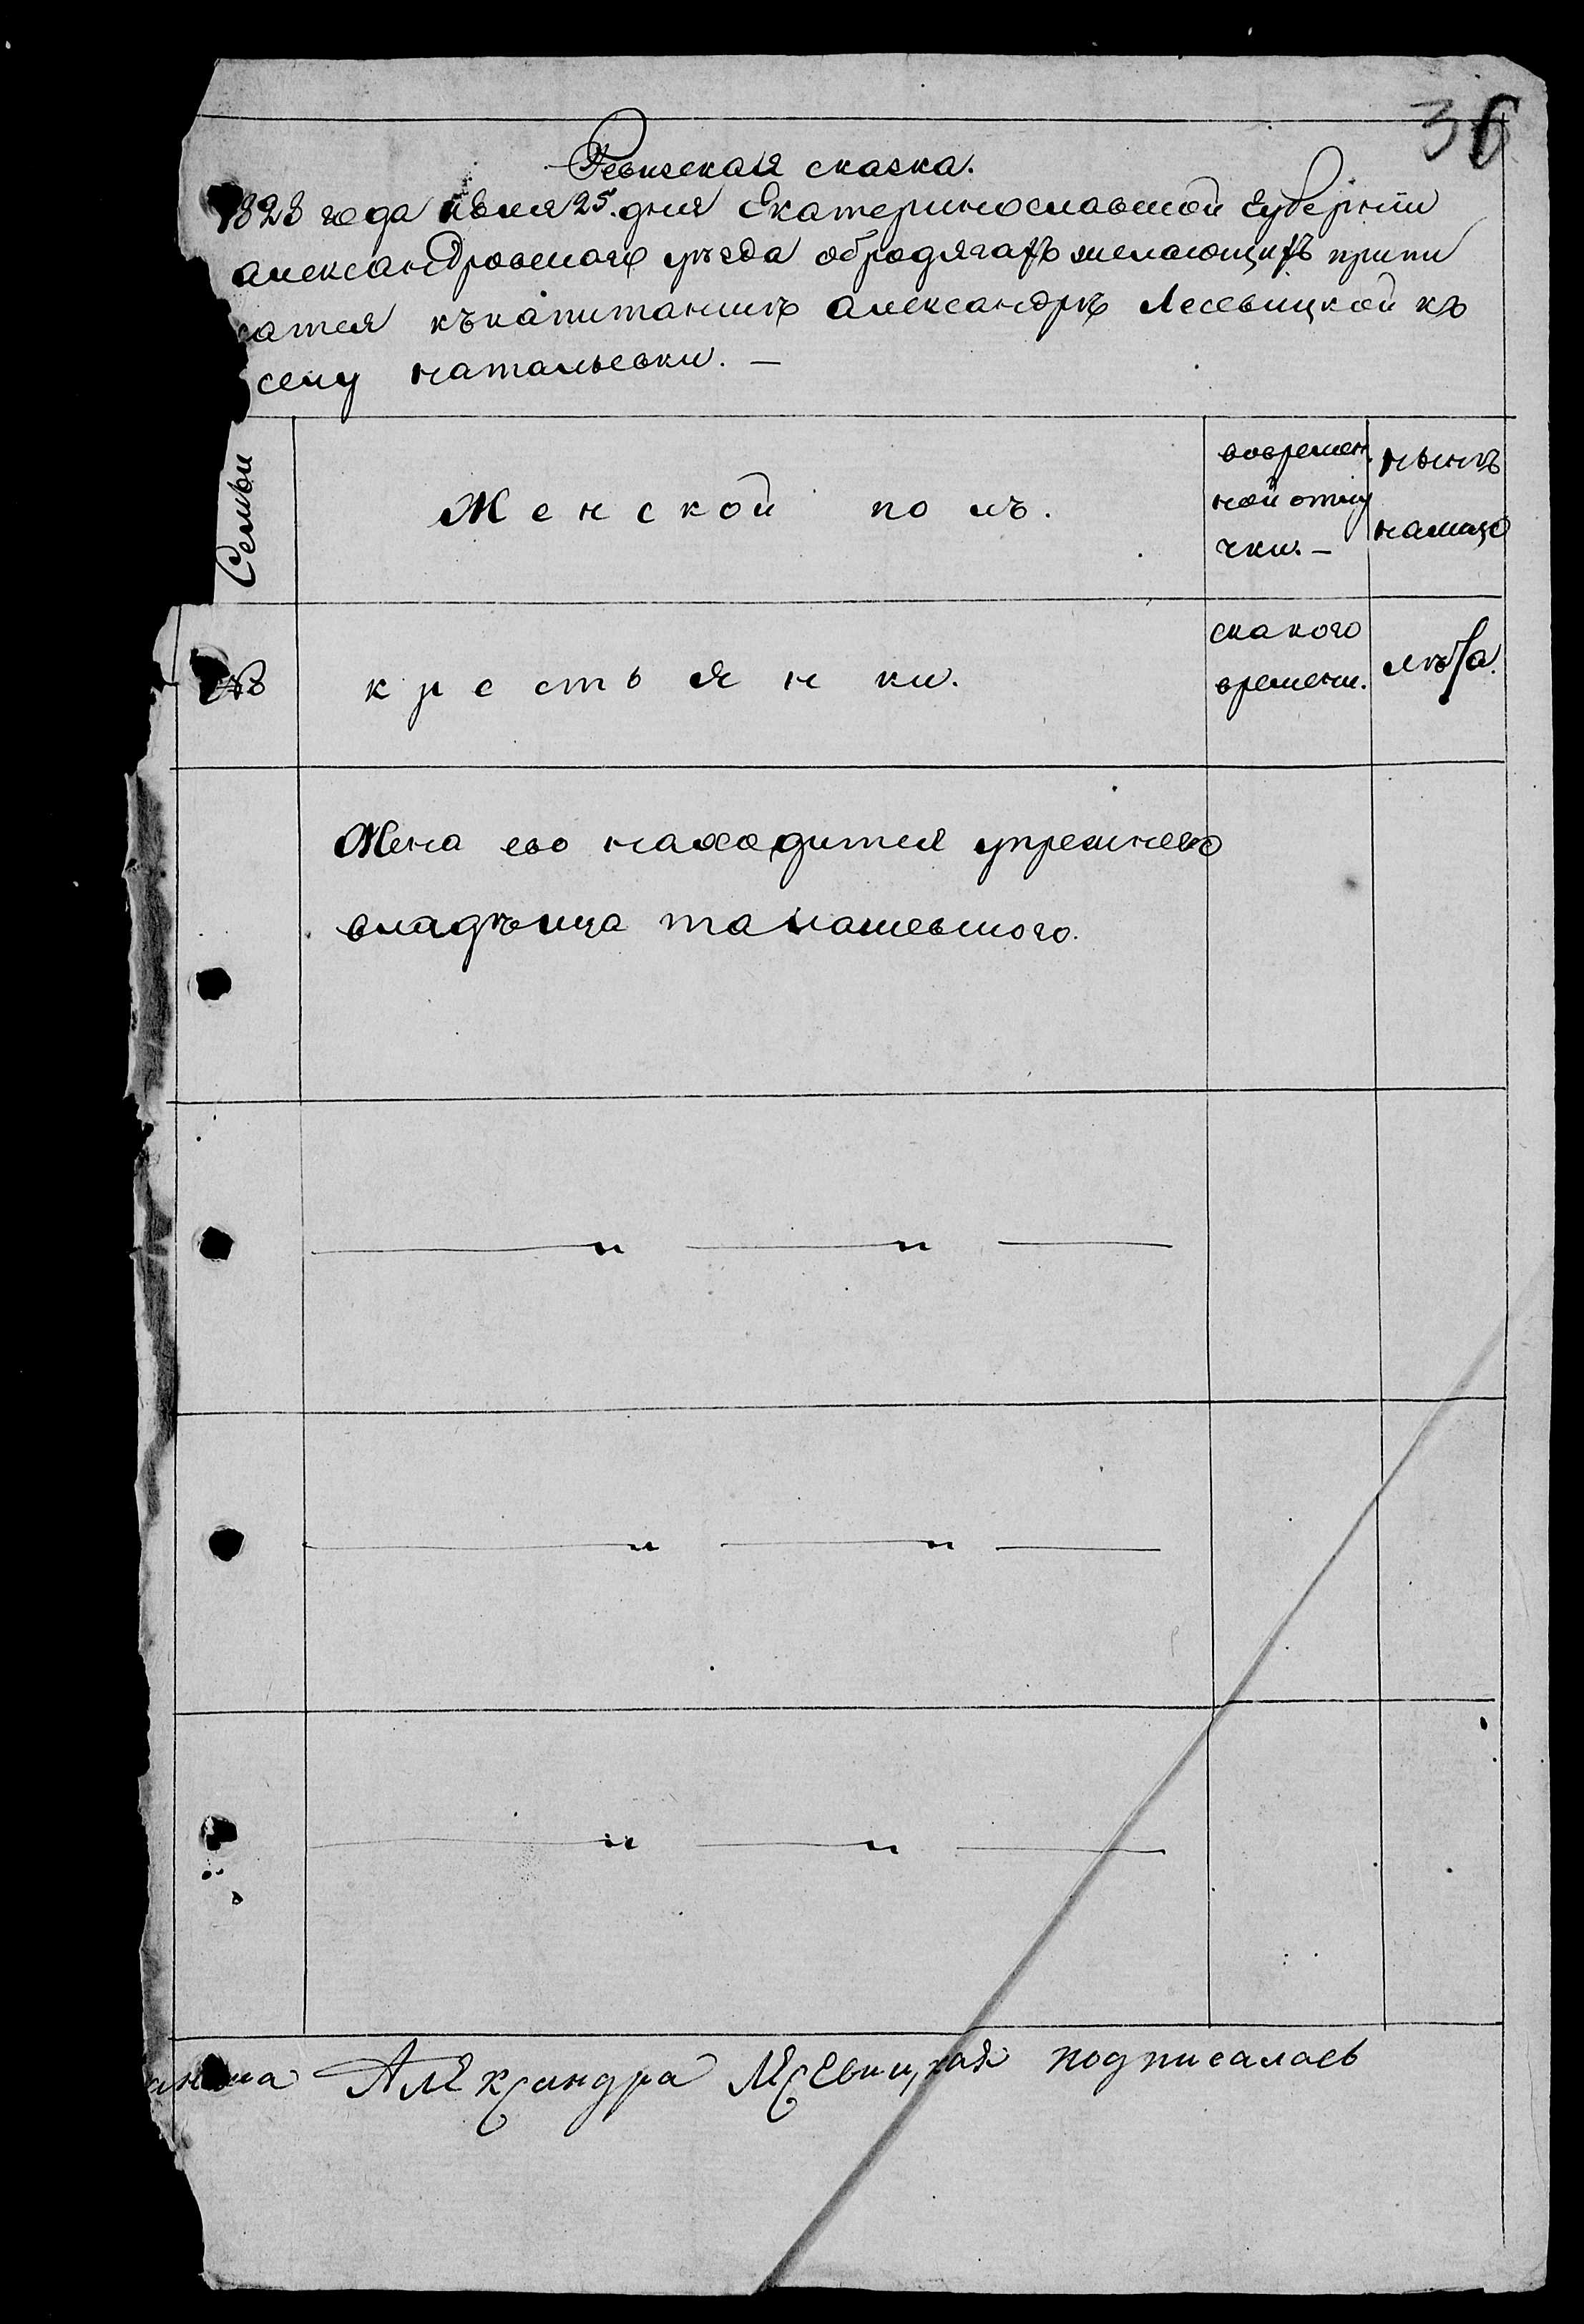 36
Ревизская сказка.
1828 года июля 25. дня Екатеринославской губернии
александровского уѣзда обродягахъ желающихъ припи
сатся къкапитаншѣ александрѣ Лесевицкой къ
селу натальевки. —
Семьи
Женской полъ.
вовремен
ной отлу
чки. —
нынѣ
налицо
№
крестьянки.
скакого
времени.
лѣта.
Жена ево находится упрежнево
владѣльца
Александра Лесевицкая подписалась